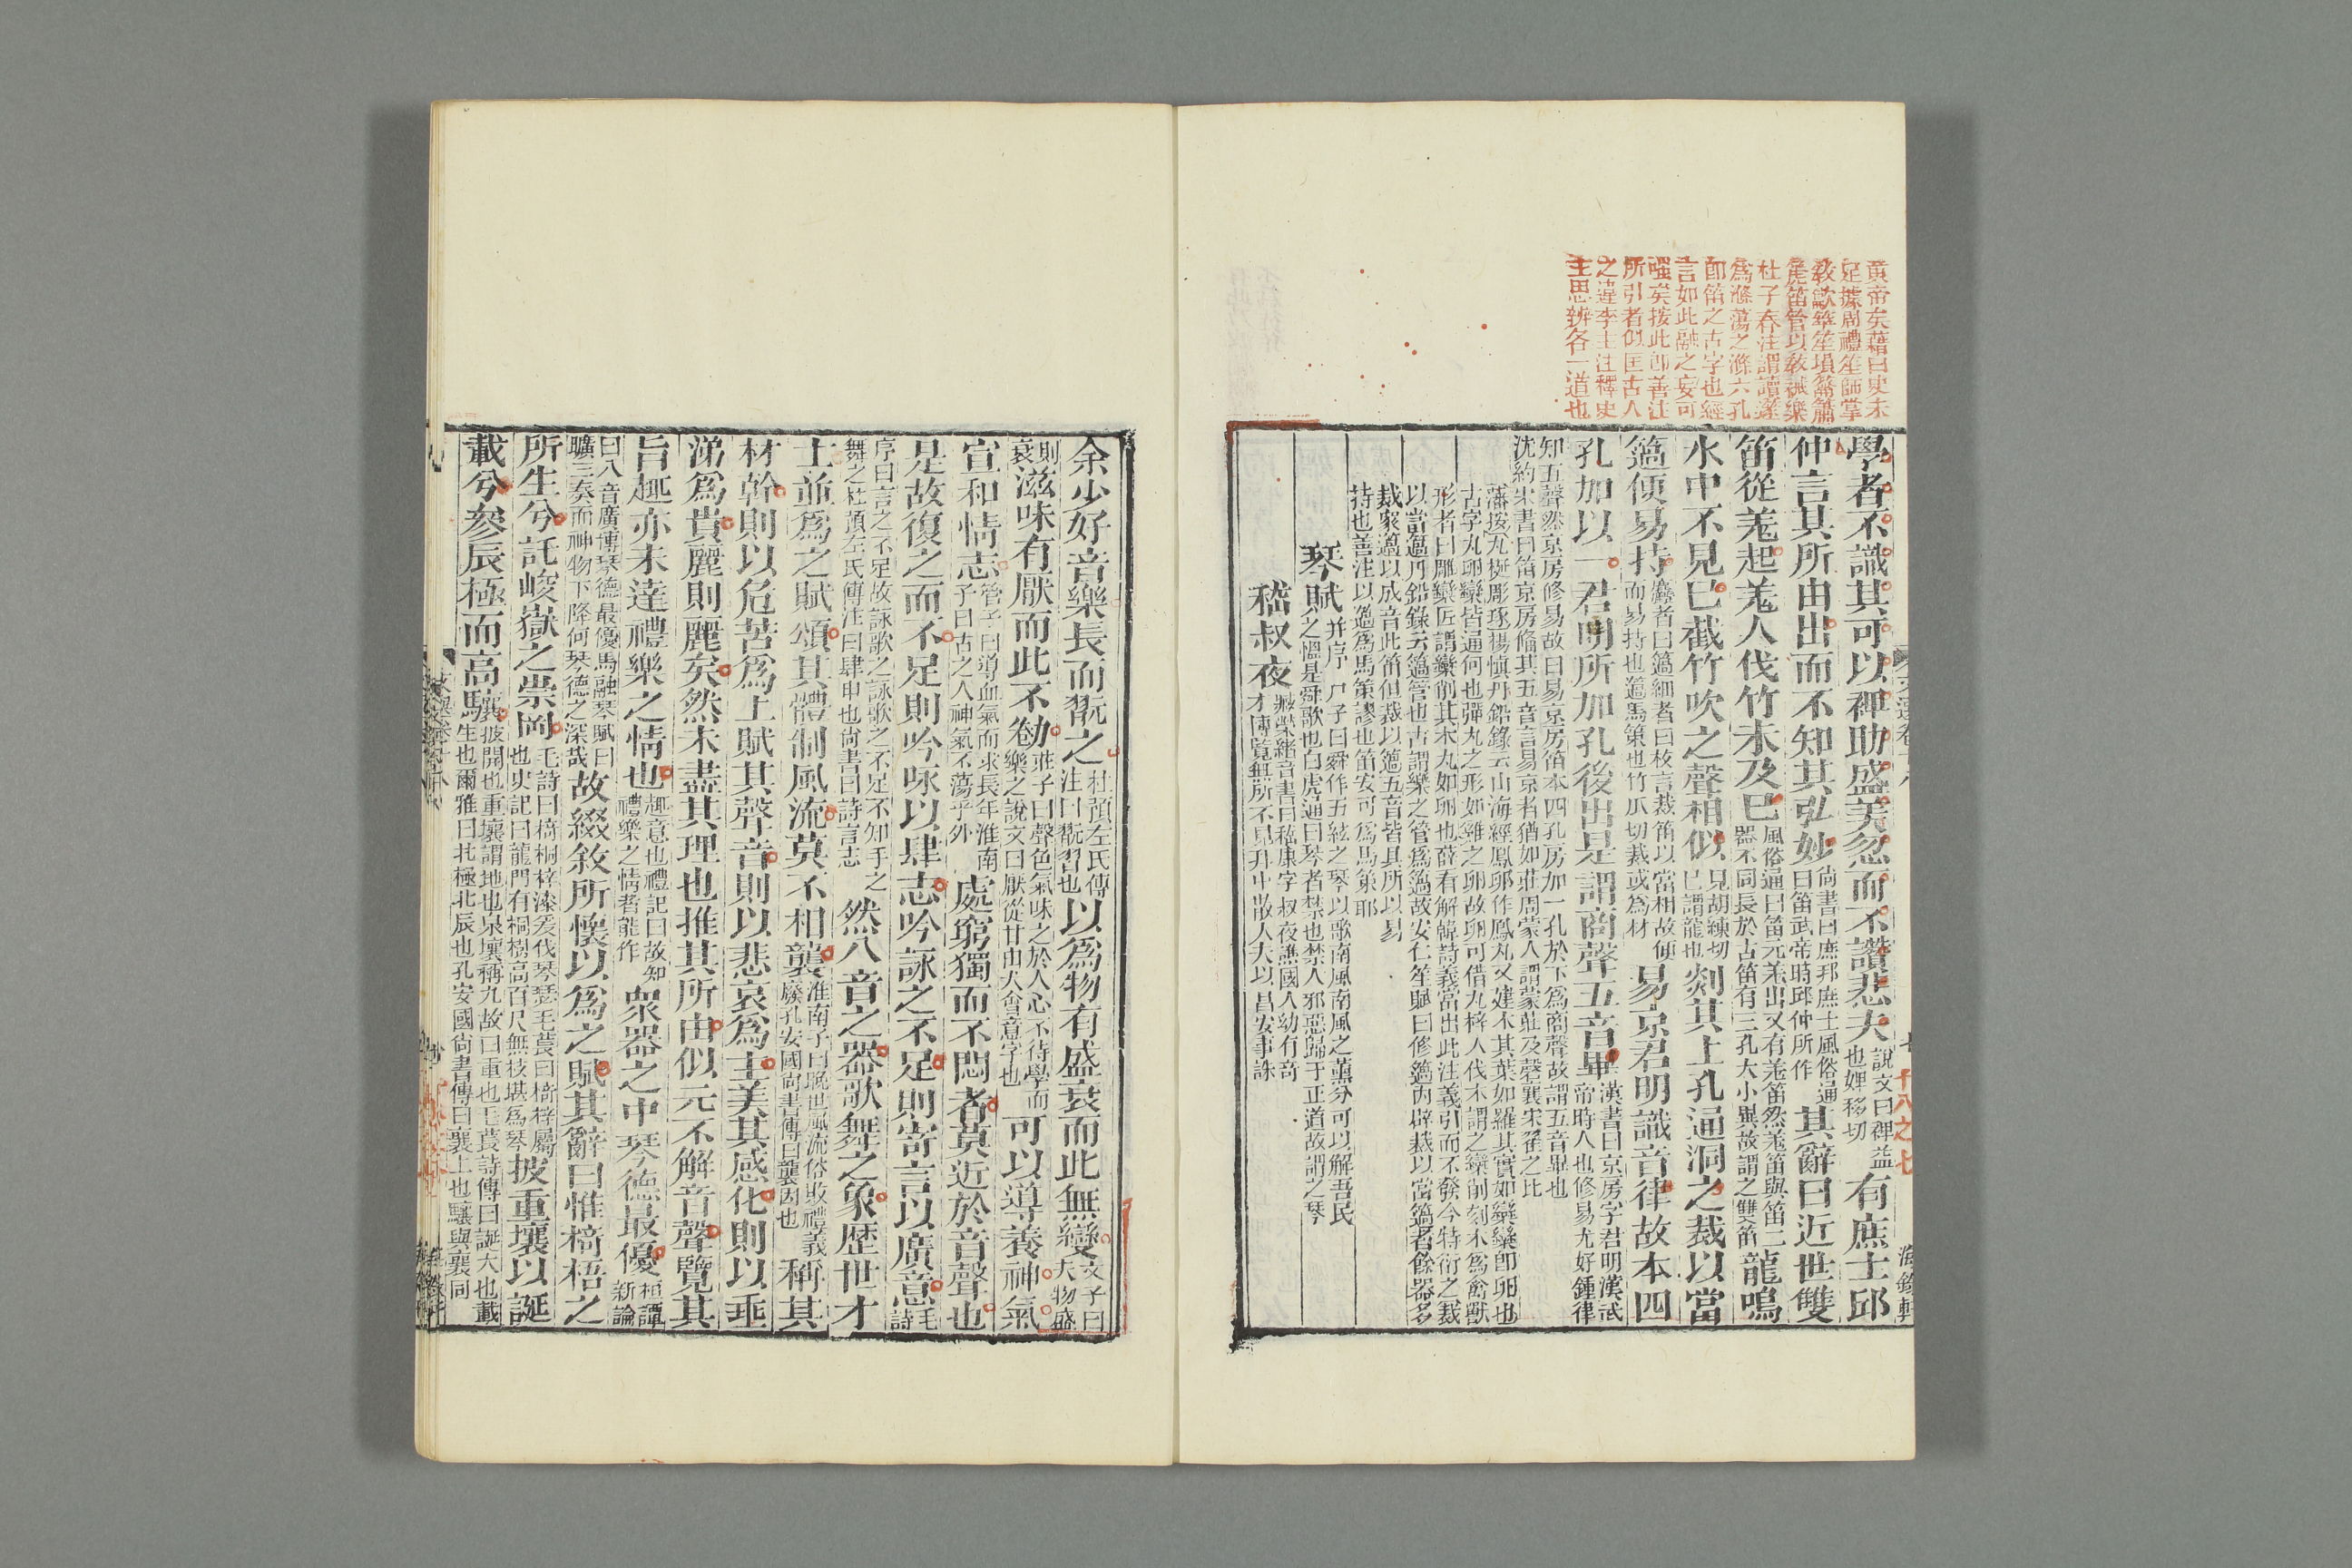 黃帝矣葉曰史未
足據周禮笙師掌
敎龡竽笙塤籥簫
箎篴管以敎祴樂
杜子春注謂讀篴
爲滌蕩之滌六孔
卽笛之古字也經
言如此融之妄可
嗤矣按此卽善注
所引者似匡古人
之違李主注釋史
主思辨各一道也
學者不識其可以裨助盛美忽而不讚悲夫說文曰裨益也婢移切有庶士邱
仲言其所由出而不知其弘妙尙書曰庶邦庶士風俗通曰笛武帝時邱仲所作其辭曰近世雙
笛從羌起羌人伐竹未及已風俗通曰笛元羌出又有羌笛然羌笛與笛二器不同長於古笛有三孔大小異故謂之雙笛龍鳴
水中不見已截竹吹之聲相似見胡練切已謂龍也剡其上孔通洞之裁以當
簻便易持麤者曰簻細者曰枚言裁笛以當檛故便而易持也簻馬策也竹瓜切裁或爲材易京君明識音律故本四
孔加以一君明所加孔後出是謂商聲五音畢漢書曰京房字君明漢武帝時人也修易尤好鍾律
知五聲然京房修易故曰易京房笛本四孔房加一孔於下爲商聲故謂五音畢也
沈約宋書曰笛京房備其五音言易京者猶如莊周蒙人謂蒙莊及磬襄宋翟之比
藩按丸梴彫琢楊愼丹鉛錄云山海經鳳卵作鳳丸又建木其葉如羅其實如欒欒卽卵也
古字丸卵欒皆通何也彈丸之形如雞之卵故卵可借丸梓人伐木謂之欒削刻木爲禽獸
形者曰雕欒匠謂欒削其木丸如卵也薛有解韓詩義當出此注義引而不發今特衍之裁
以當簻丹鉛錄云簻管也古謂樂之管爲簻故安仁笙賦曰修簻內辟裁以當簻者餘器多
裁衆簻以成音此笛但裁以簻五音皆具所以易
持也善注以簻爲馬策謬也笛安可爲馬策耶
琴賦幷序尸子曰舜作五絃之琴以歌南風南風之薰兮可以解吾民之慍是舜歌也白虎通曰琴者禁也禁人邪惡歸于正道故謂之琴
嵇叔夜臧榮緒晉書曰嵇康字叔夜譙國人幼有奇才博覽無所不見拜中散大夫以呂安事誅
余少好音樂長而翫之杜預左氏傳注曰翫習也以爲物有盛衰而此無變文子曰夫物盛
則衰滋味有厭而此不勌莊子曰聲色氣味之於人心不待學而樂之說文曰厭從甘由犬會意字也可以導養神氣
宣和情志管子曰導血氣而求長年淮南子曰古之人神氣不蕩乎外處窮獨而不悶者莫近於音聲也
是故復之而不足則吟咏以肆志吟詠之不足則寄言以廣意毛詩
序曰言之不足故詠歌之詠歌之不足不知手之舞之杜預左氏傳注曰肆申也尙書曰詩言志然八音之器歌舞之象歷世才
士並爲之賦頌其體制風流莫不相襲淮南子曰晚世風流俗敗禮義廢孔安國尙書傳曰襲因也稱其
材幹則以危苦爲上賦其聲音則以悲哀爲主美其感化則以垂
涕爲貴麗則麗矣然未盡其理也推其所由似元不解音聲覽其
旨趣亦未達禮樂之情也趣意也禮記曰故知禮樂之情者能作衆器之中琴德最優桓譚新論
曰八音廣博琴德最優馬融琴賦曰曠三奏而神物下降何琴德之深哉故綴敘所懷以爲之賦其辭曰惟椅梧之
所生兮託峻嶽之崇岡毛詩曰椅桐梓漆爰伐琴瑟毛萇曰椅梓屬也史記曰龍門有桐樹高百尺無枝堪爲琴披重壤以誕
載兮參辰極而高驤披開也重壤謂地也泉壤稱九故曰重也毛萇詩傳曰誕大也載生也爾雅曰北極北辰也孔安國尙書傳曰襄上也驤與襄同